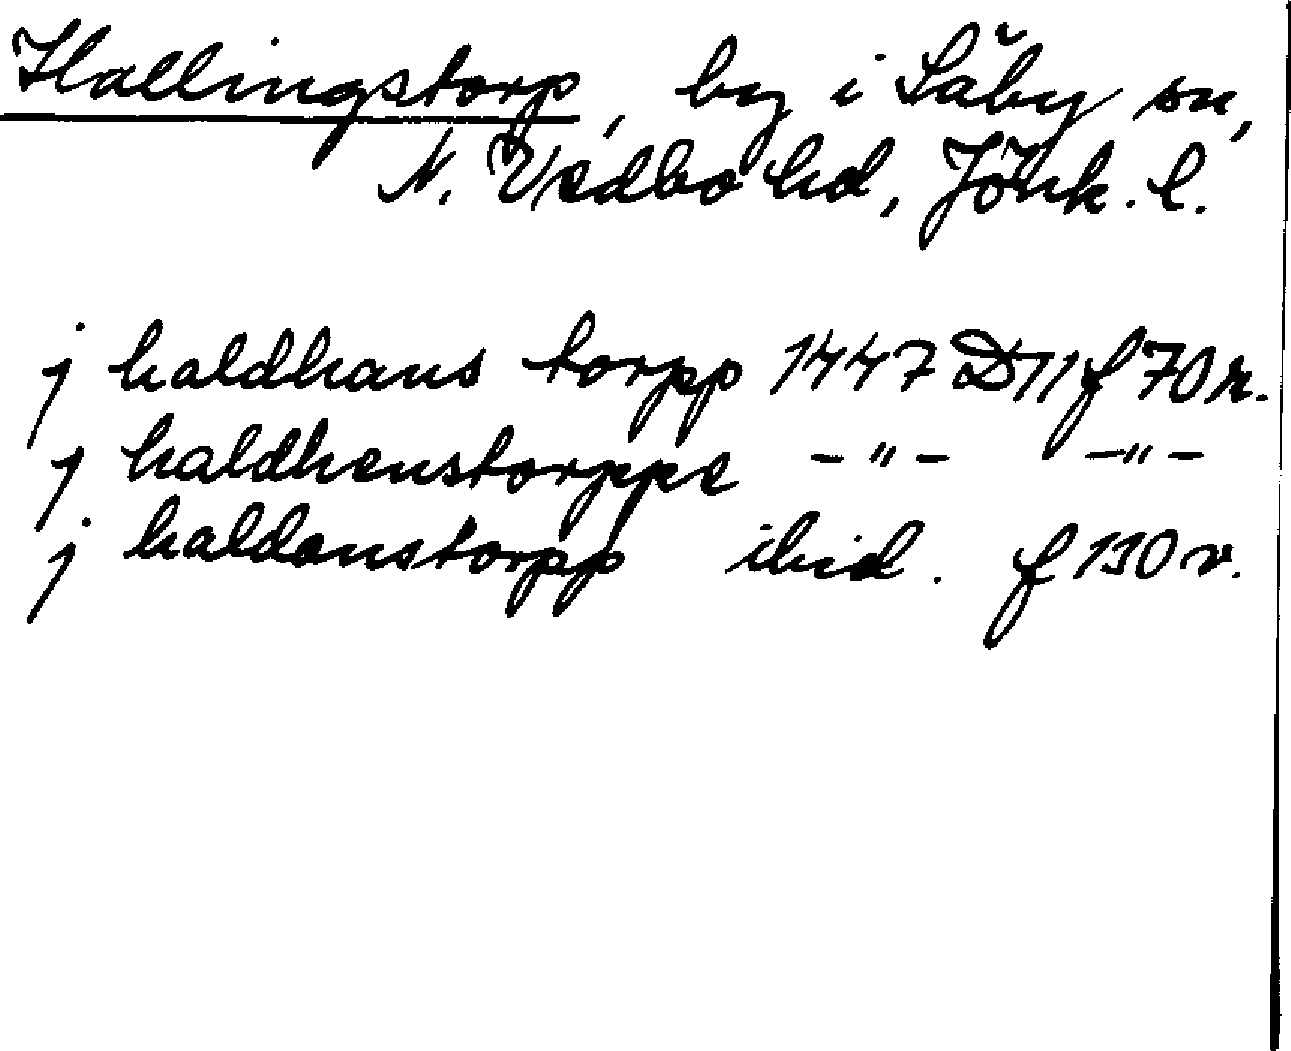 Hallingstorp, by i Säby sn,
N. Vedbo hd, Jönk. l.
j haldhans torpp 1447 D11 f 70 r.
j haldhenstorppe -"- -"-
j haldanstorpp ibid. f 130 v.